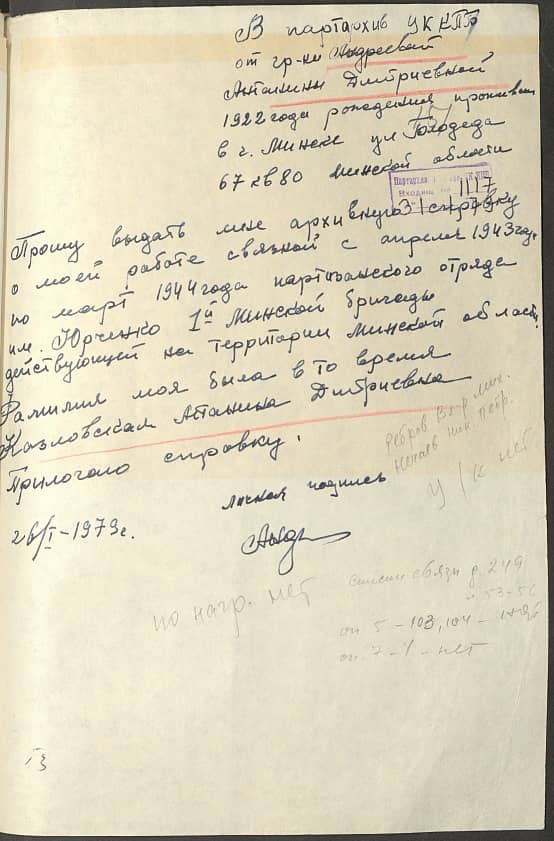 В партархив УККПБ
от гр-ки Андреевой
Антанины Дмтриевной
1922 года рождения прожив
в г. Минске ул Голодеда
67 кв 80 Минской области
Партархив
Входящий
1117
31/I 79
Прошу выдать мне архивную справку
о моей работе связной с апреля 1943 года
по март 1944 года партизанского отряда
им. Юрченко 1й Минской бригады
действующей на территории Минской област.
Фамилия моя была в то время
Казловская Атанина Дмтриевна
Прилогаю справку.
личная подпись
26/I-1979г.
У/к нет
по нагр. нет
списки связи д. 249
л. 53-56
оп 5 - 103, 104 -
оп. 7 - 1 - нет
13